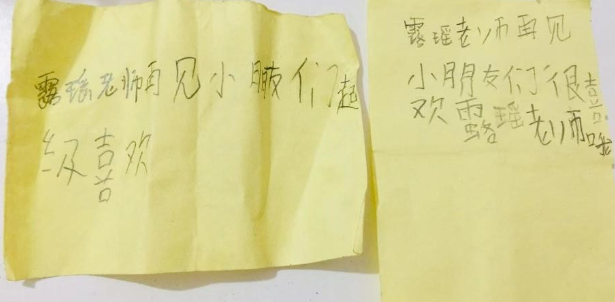 露瑶老师再见小朋友们超
级喜欢
露瑶老师再见
小朋友们很喜
欢露瑶老师哦